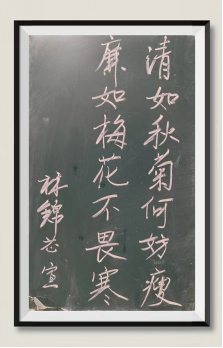 清如秋菊何妨瘦
廉如梅花不畏寒
林锦芯宣